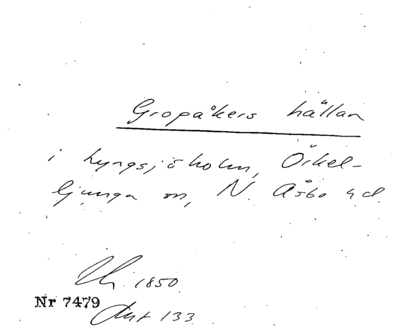 Gropåkers hällan
i Lyngsjöholm, Örkel-
ljunga sn, N. Åsbo hd
1850
Nr 7479
Ant 133